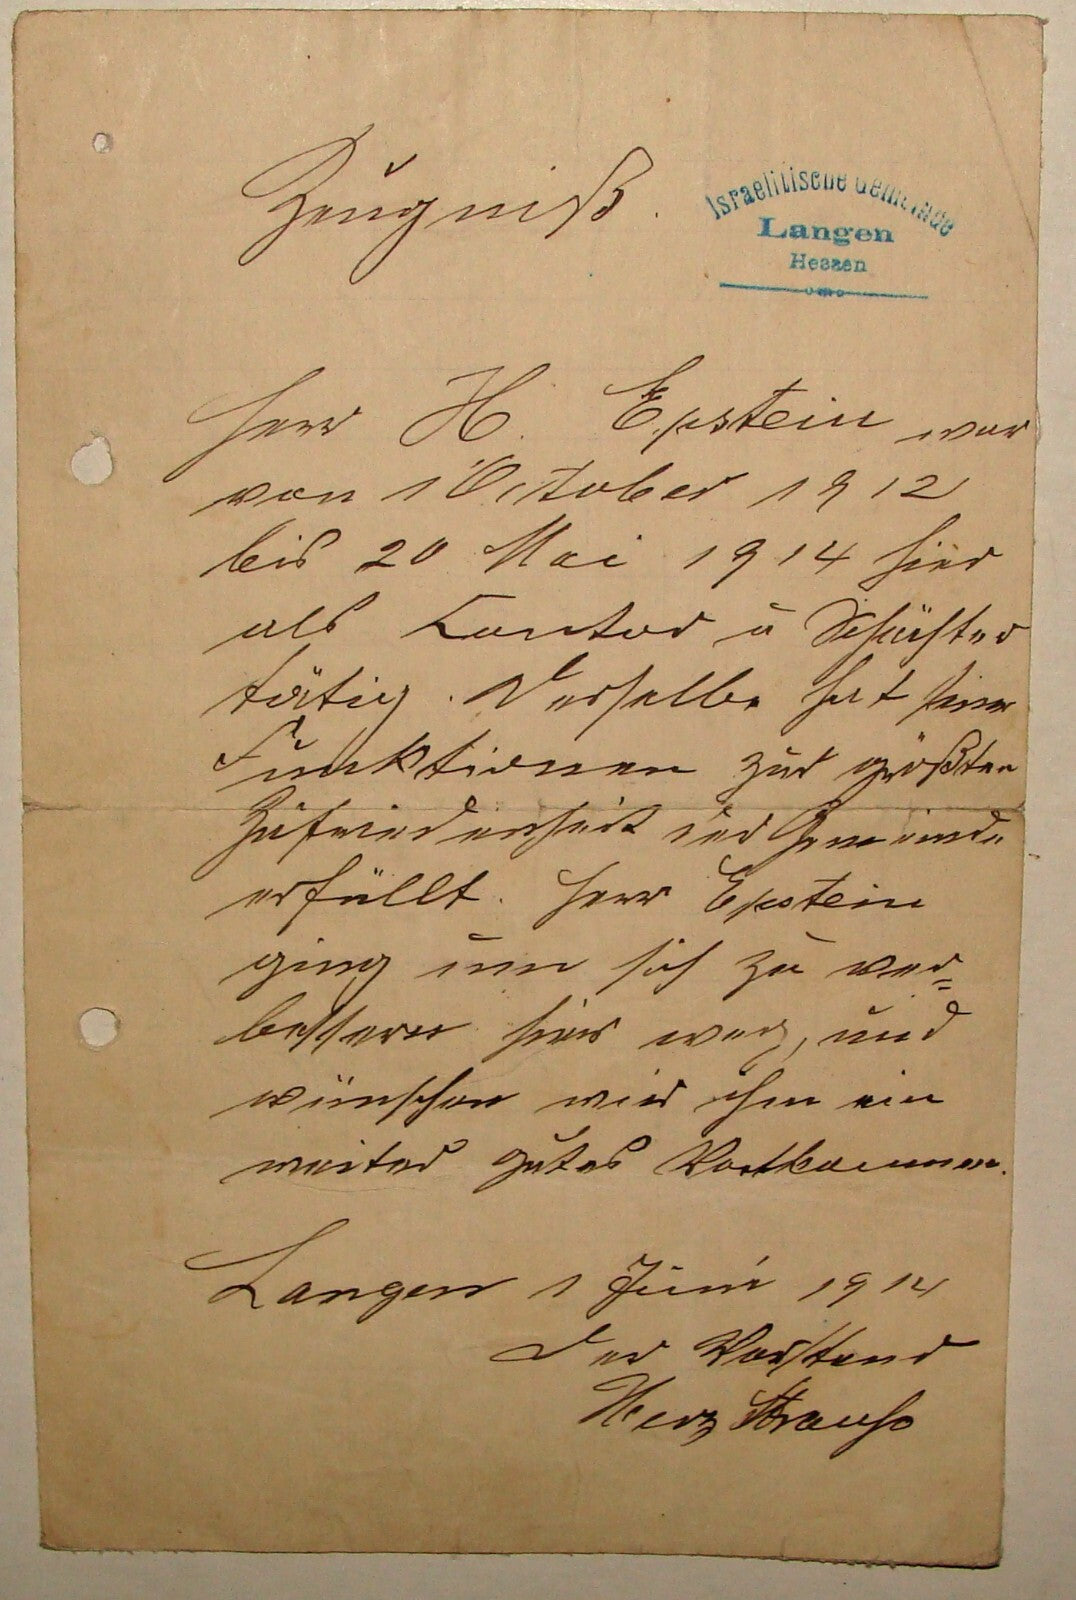 Zeugniß.
Israelitische Gemeinde
Langen
Hessen
Herr H. Epstein war
von 1 October 1912
bis 20 Mai 1914 hier
als Cantor u Schächter
tätig. Derselbe hat seine
Funktionen zur größten
Zufriedenheit der Gemeinde
erfüllt. Herr Epstein
ging um sich zu ver=
bessern hier weg, und
wünschen wir ihm ein
weiter gutes Vortkommen.
Langen 1 Juni 1914
Der Vorstand
Herz Strauß